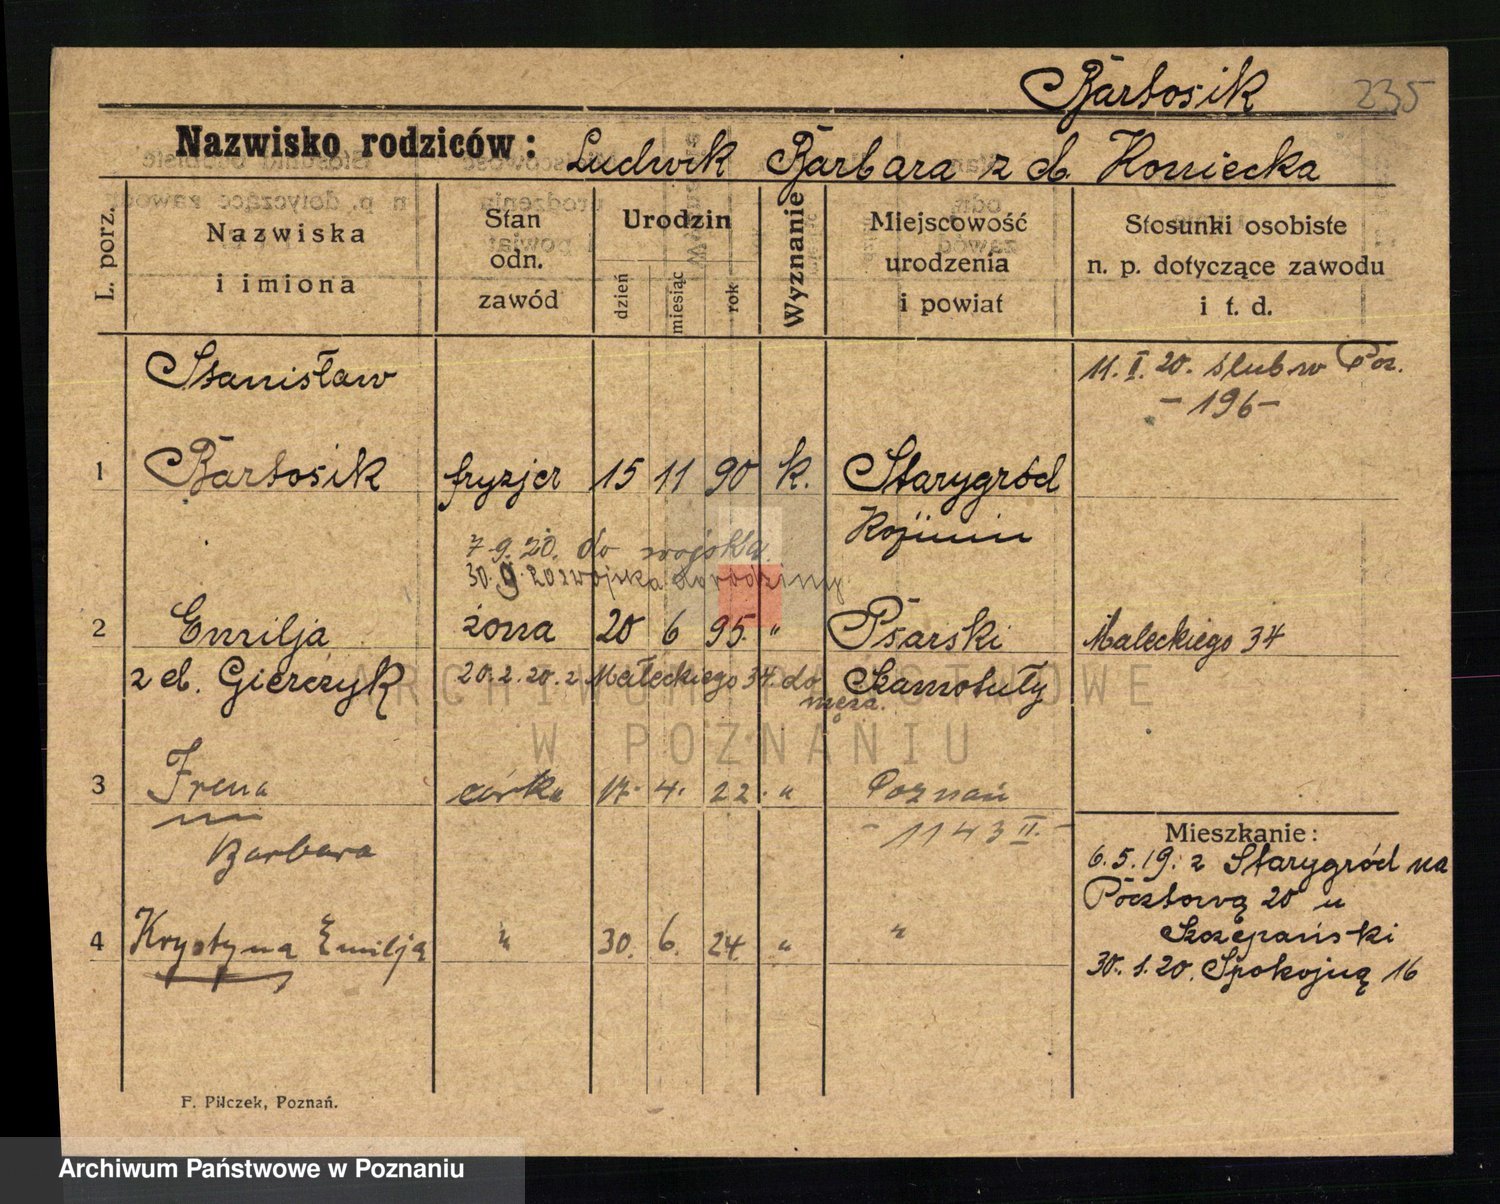 Bartosik 235
Nazwisko rodziców: Ludwik Barbara z d. Koniecka
L. porz.
Nazwiska
i imiona
Stan
odn.
zawód
Urodzin
dzień
miesiąc
rok
Wyznanie
Miejscowość
urodzenia
i powiat
Stosunki osobiste
n. p. dotyczące zawodu
i t. d.
Stanisław
11. I. 20. ślub w Poz.
- 196 -
1 Bartosik fryzjer 15 11 90 k. Starygród
7.9.20. do wojska
30. 9. z wojska do rodziny
2 Emilja żona 20 6 95. " Psarski Małeckiego 34
z d. Gierczyk 20.2.20. z Małeckiego 34. do męża. Szamotuły
3 Irena córka 17. 4. 22. " Poznań
- 1143 II. -
Barbara
4 Krystyna Emilja " 30. 6. 24. " "
Mieszkanie:
6.5.19. z Starygród na
Pocztową 20 u
Szczepański
30. 1. 20. Spokojną 16
F. Pilczek, Poznań.
ARCHIWUM PAŃSTWOWE
W POZNANIU
Archiwum Państwowe w Poznaniu